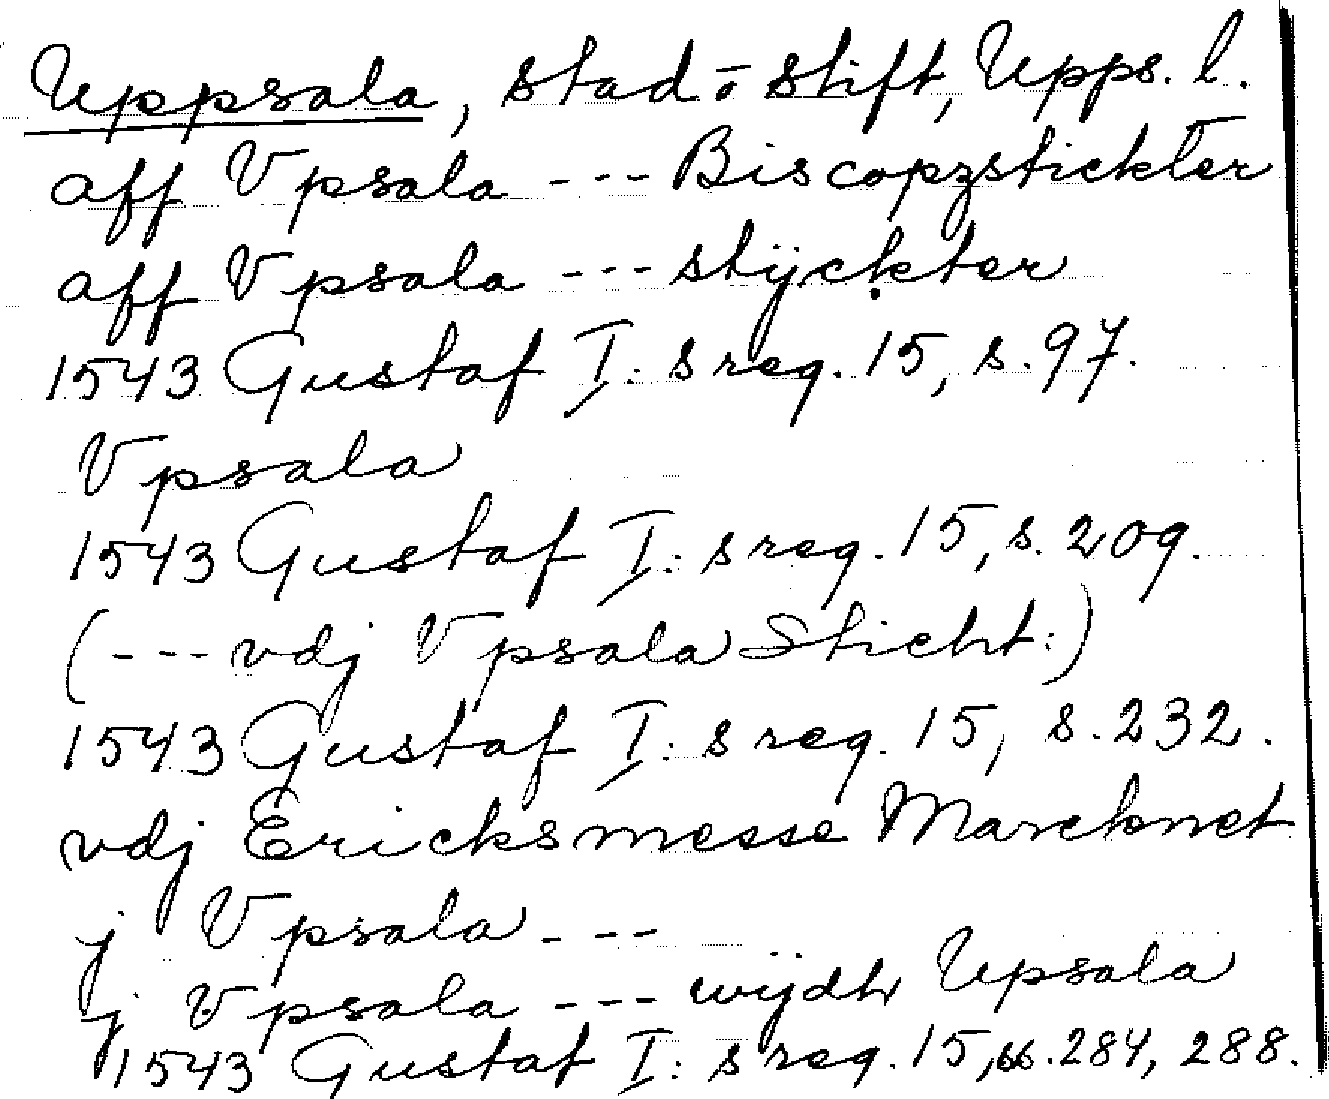 Uppsala, stad o stift, Upps. l.
aff Vpsala --- Biscopzstickter
aff Vpsala --- stÿckter
1543 Gustaf I:s reg. 15, s. 97.
Vpsala
1543 Gustaf I:s reg. 15, s. 209.
(--- vdj Vpsala Sticht:)
1543 Gustaf I:s reg. 15, s. 232.
vdj Ericksmesse Marcknet
j Vpsala ---
j Vpsala --- wÿdh Upsala
1543 Gustaf I:s reg. 15, ss. 284, 288.